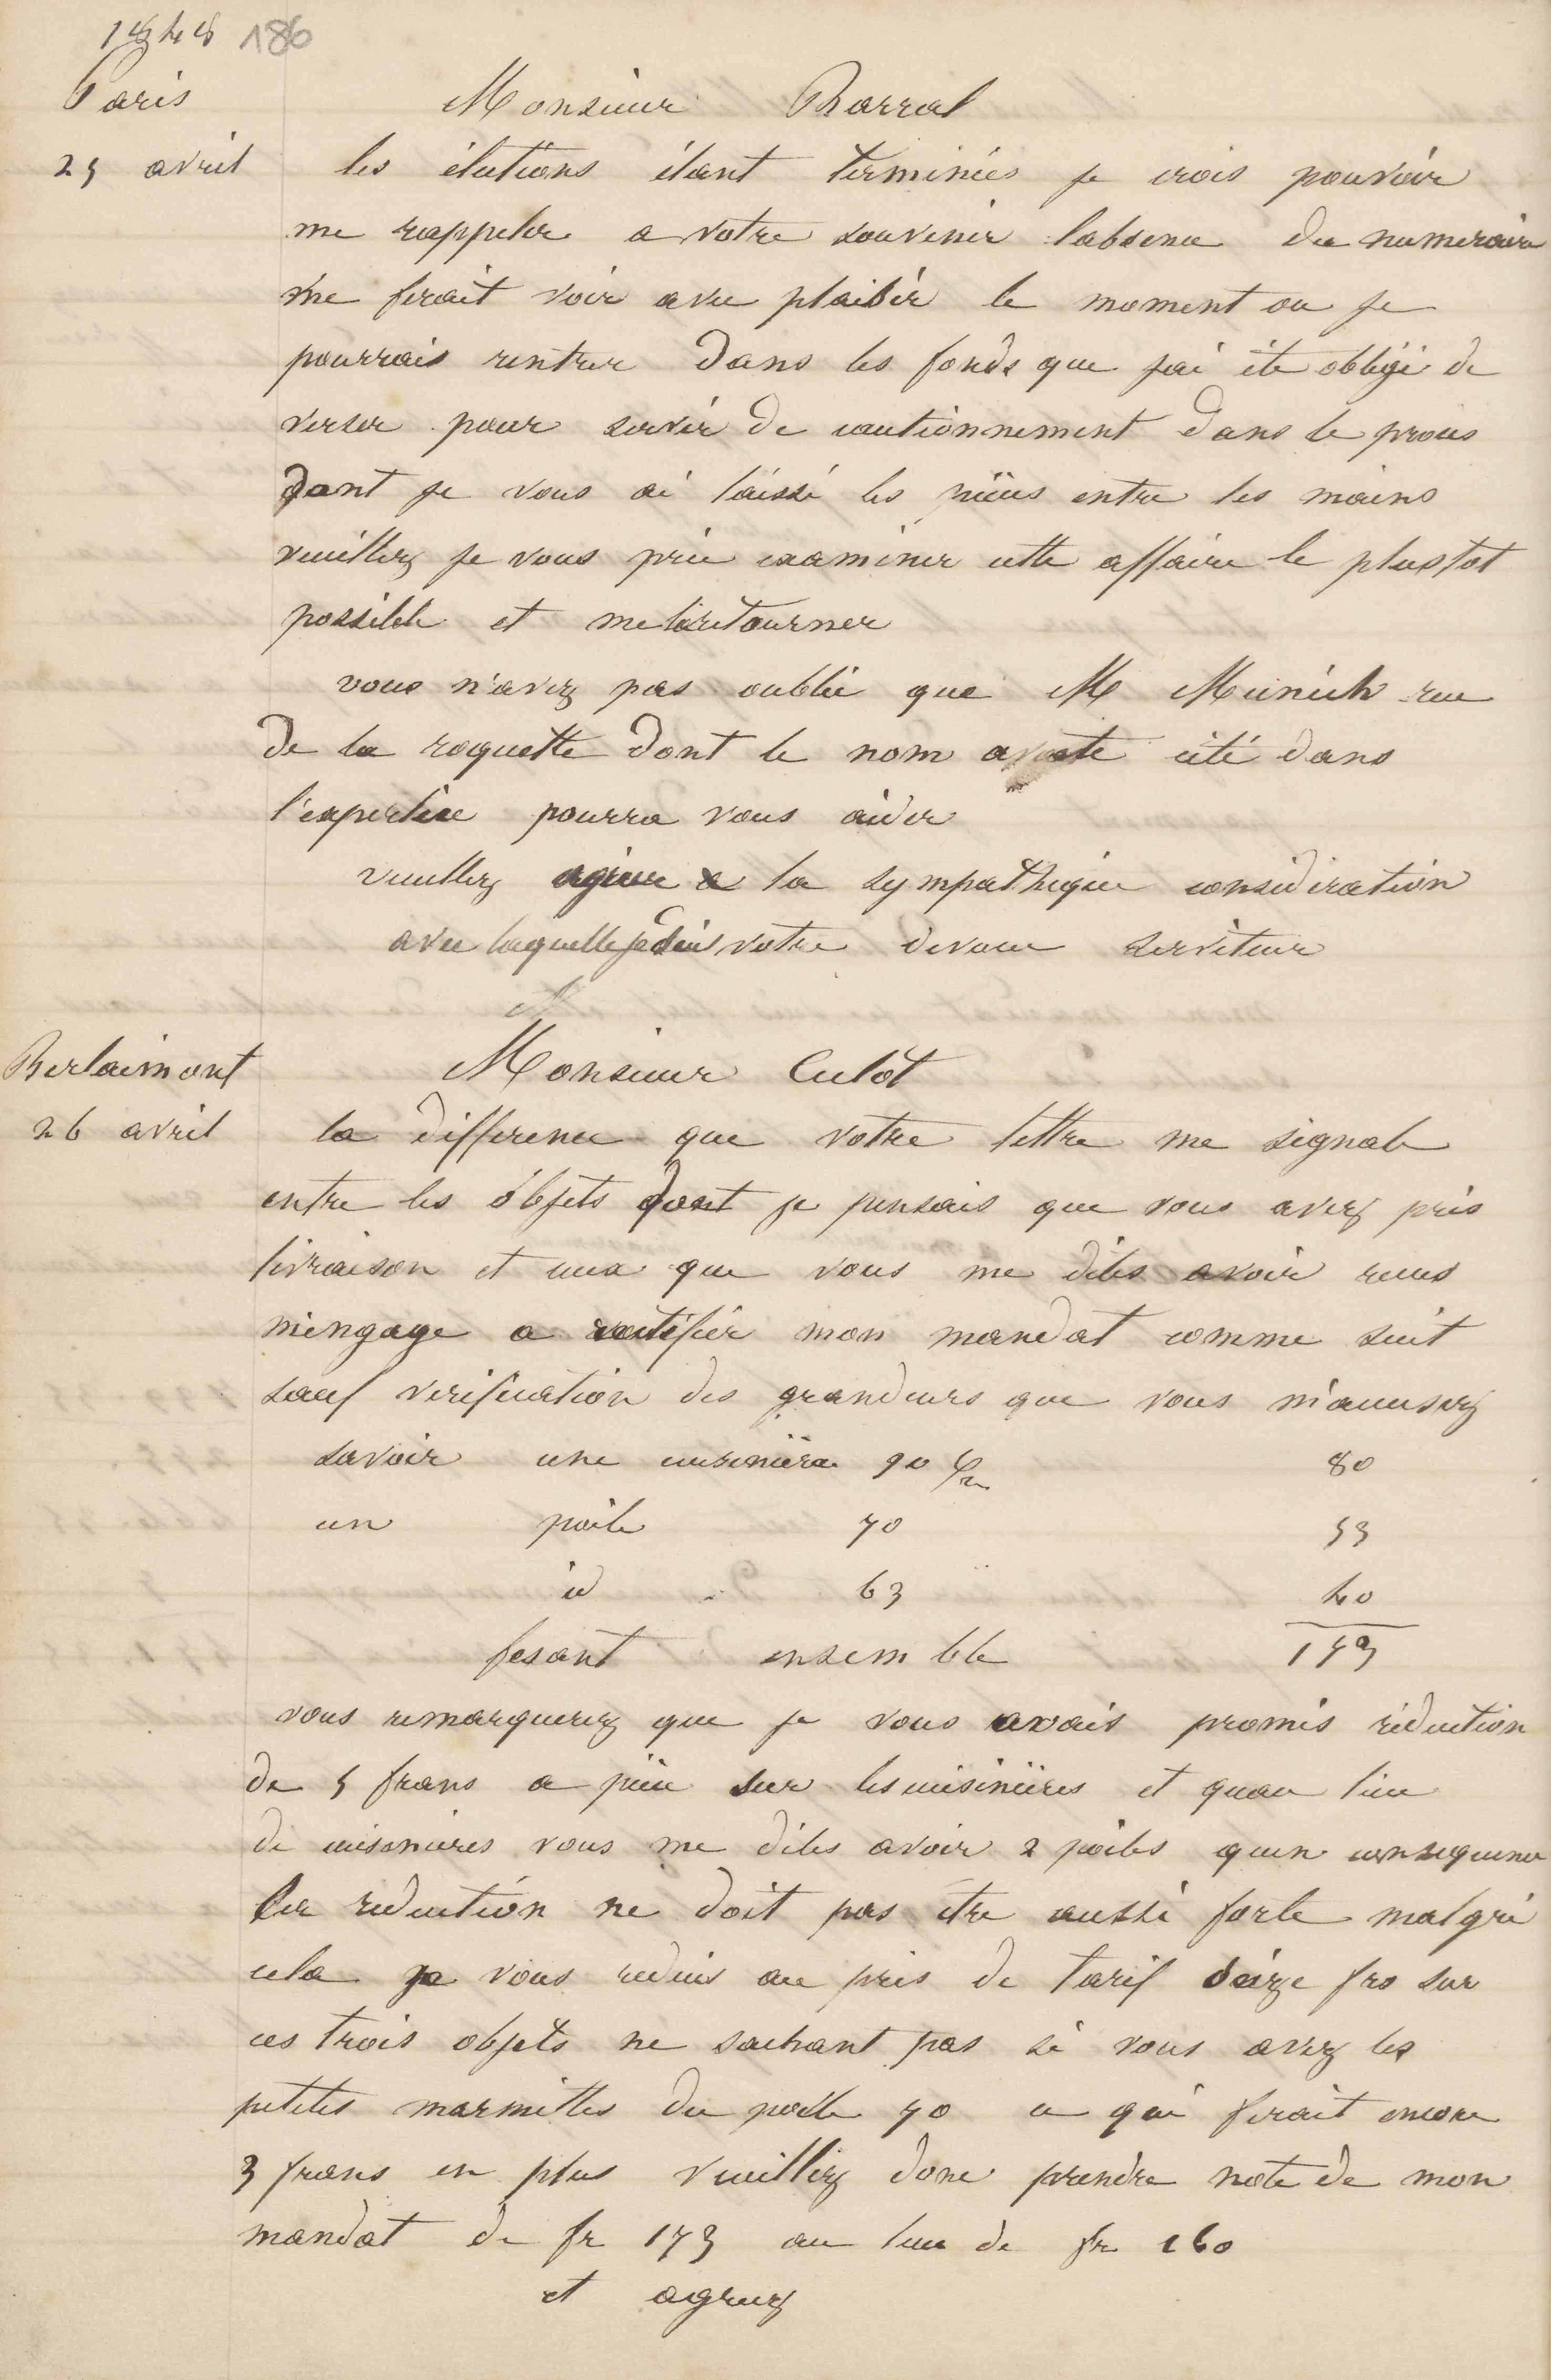 1848 186
Paris
Monsieur Barral
25 avril les élections étant terminées je crois pouvoir
me rappeler a votre souvenir labsence du numeraire
me ferait voir avec plaisir le moment ou je
pourrais rentrer dans les fonds que jai été obligé de
verser pour servir de cautionnement dans le procès
dont je vous ai laissé les pièces entre les mains
veuillez je vous prie examiner cette affaire le plustot
possible et me la retourner
vous n'avez pas oublié que M Munich rue
de la roquette dont le nom a été cité dans
l'expertise pourra vous aider
veuillez agréer la sympathique consideration
avec laquelle je suis votre devoué serviteur
Berlaimont
Monsieur Culot
26 avril la difference que votre lettre me signale
entre les objets dont je pensais que vous avez pris
livraison et ceux que vous me dites avoir recus
m'engage a rectifier mon mandat comme suit
sauf verification des grandeurs que vous m'accusez
savoir une cuisinière 90 80
un poile 70 53
id 63 40
fesant ensemble 173
vous remarquerez que je vous avais promis réduction
de 5 francs a pièce sur les cuisinières et quau lieu
de cuisinieres vous me dites avoir 2 poiles quen consequence
la reduction ne doit pas etre aussi forte malgré
cela je vous reduis au prix de tarif seize frs sur
ces trois objets ne sachant pas si vous avez les
petites marmittes du poile 70 ce qui ferait encore
3 francs en plus veuillez donc prendre note de mon
mandat de fr 173 au lieu de fr 160
et agreez